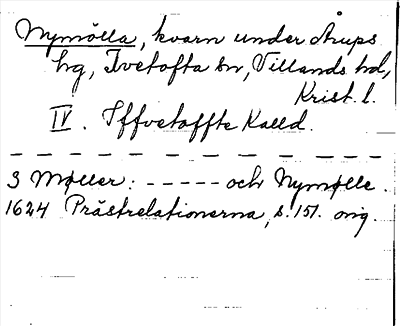 Nymölla, kvarn under Årups
hg, Ivetofta sn, Villands hd,
Krist. l.
IV. Iffvetoffte Kalld.
3 Møller: ----- och Nymølle.
1624 Prästrelationerna, s. 151. orig.